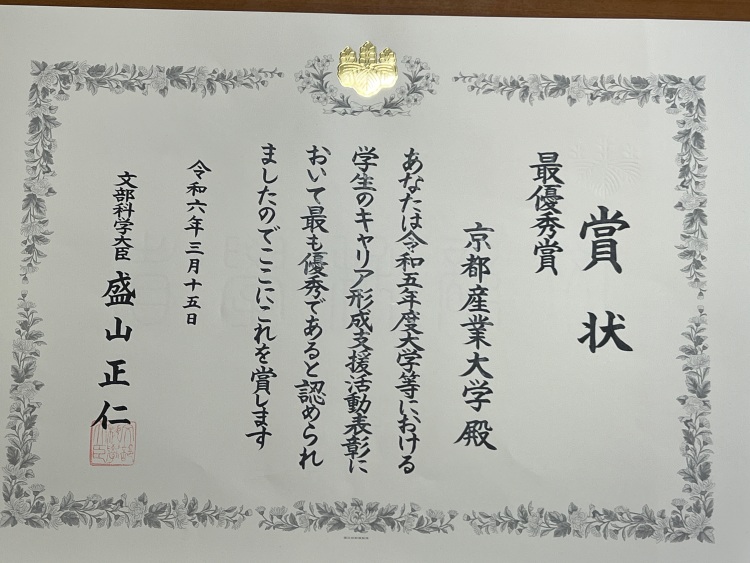 賞状
最優秀賞
京都産業大学殿
あなたは令和五年度大学等における
学生のキャリア形成支援活動表彰に
おいて最も優秀であると認められ
ましたのでここにこれを賞します
令和六年三月十五日
文部科学大臣 盛山正仁